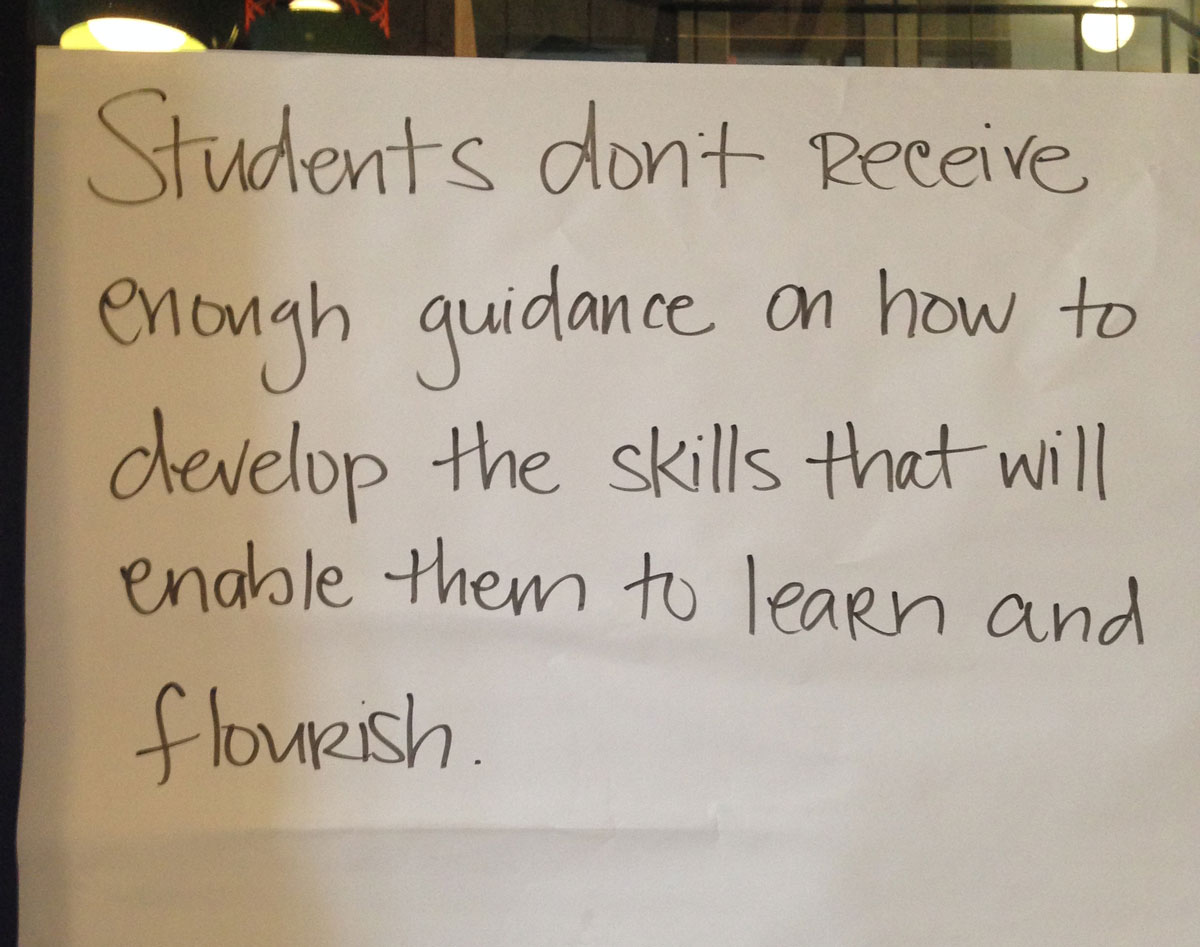 Students don't Receive
enough guidance on how to
develop the skills that will
enable them to learn and
flourish.